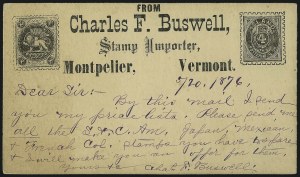 FROM
Charles F. Buswell,
Stamp Importer,
Montpelier, Vermont.
5/20. 1876.
Dear Sir:- By this mail I send
you my price lists. Please send me
all the Am, Japan, Mexican
& French Col. stamps you have to spare
& I will make you an offer for them.
Chas. F. Buswell.